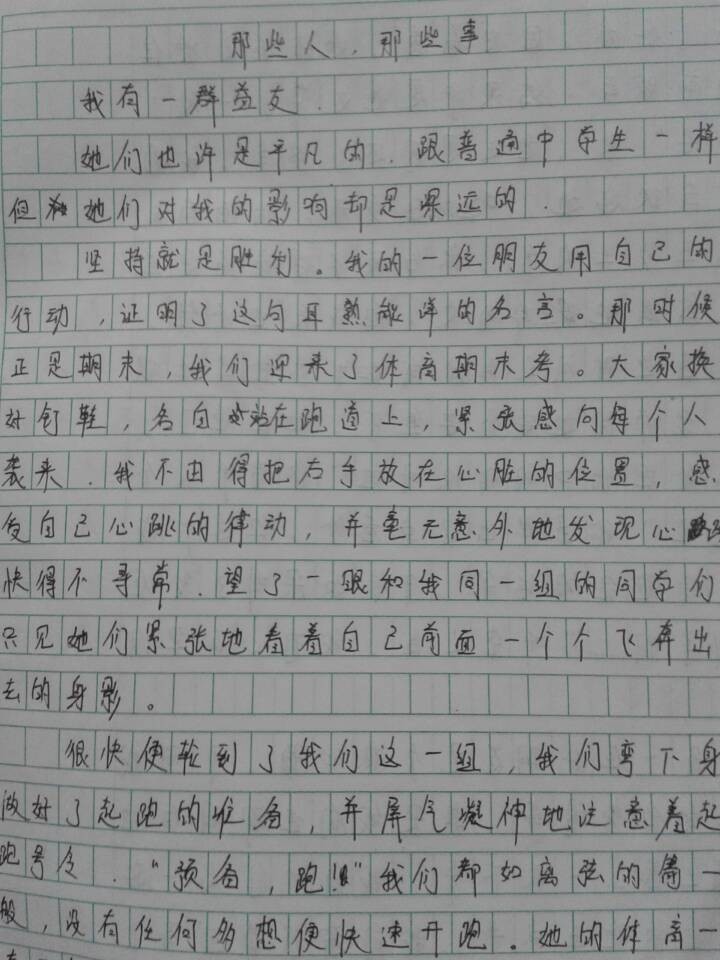 那些人,那些事
我有一群益友.
她们也许是平凡的.跟普通中学生一样
但她们对我的影响却是深远的.
坚持就是胜利。我的一位朋友用自己的
行动,证明了这句耳熟能详的名言。那时候
正是期末,我们迎来了体育期末考。大家换
好钉鞋,各自站在跑道上,紧张感向每个人
袭来.我不由得把右手放在心脏的位置,感
受自己心跳的律动,并毫无意外地发现心跳
快得不寻常.望了一眼和我同一组的同学们
只见她们紧张地看着自己前面一个个飞奔出
去的身影。
很快便轮到了我们这一组,我们弯下身
做好了起跑的准备,并屏气凝神地注意着起
跑号令."预备,跑!!"我们都如离弦的箭一
般,没有任何多想便快速开跑。她的体育一